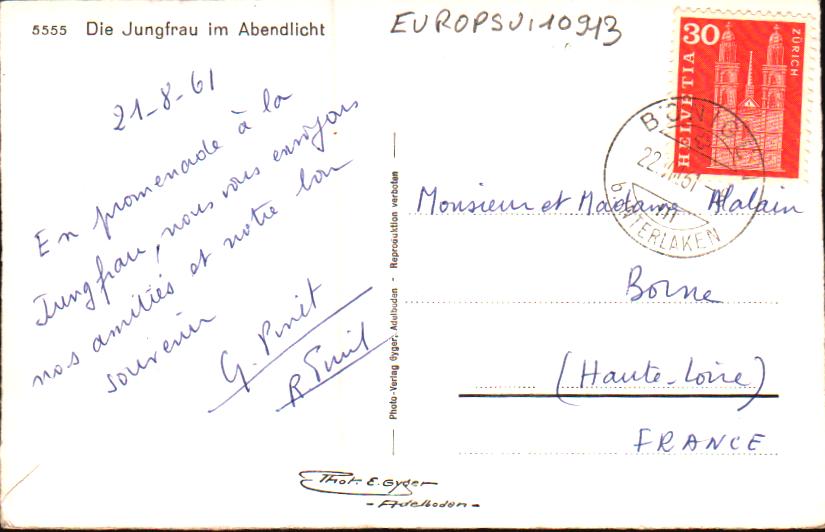 5555 Die Jungfrau im Abendlicht
EUROPSUI10913
21-8-61
En promenade à la
Jungfrau, nous vous envoyons
nos amitiés et notre bon
souvenir
G. Pinit
R
Photo-Verlag Gyger, Adelboden - Reproduktion verboten
30
HELVETIA
ZÜRICH
BÖNIGEN
22.VIII.61
b. INTERLAKEN
Monsieur et Madame Alalain
Borne
(Haute-Loire)
FRANCE
Phot. E. Gyger
- Adelboden -